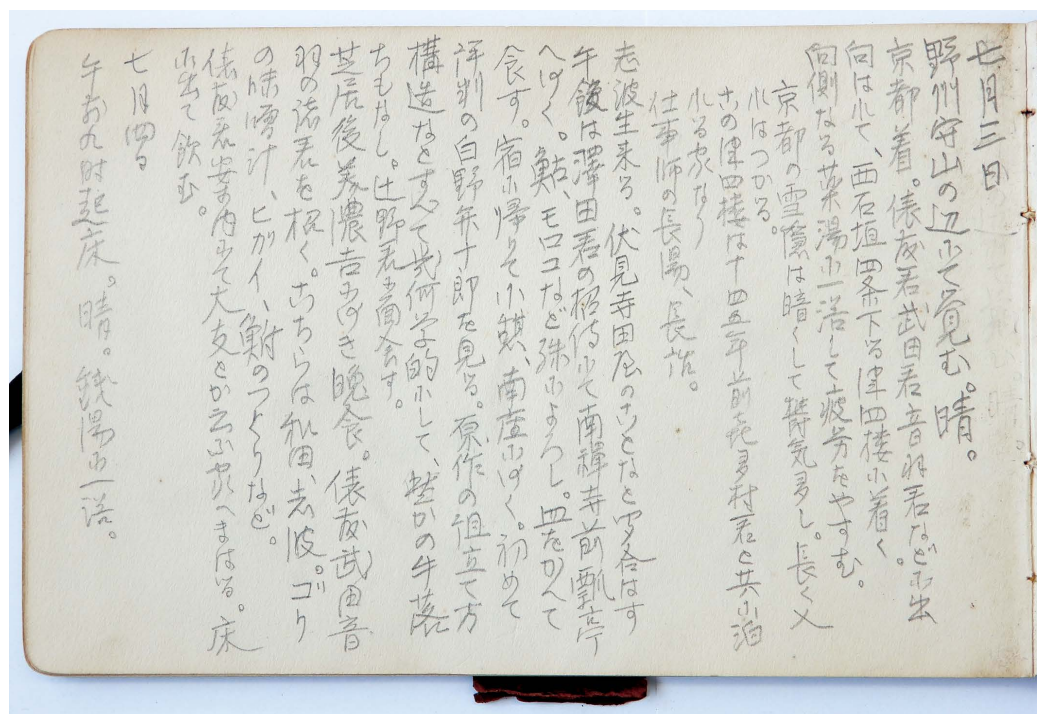 七月三日
野州守山の辺にて覚む。晴。
京都着。俵屋君武田君音羽君などに出
向はれて、西石垣四条下る津四楼に着く。
向側なる薬湯に一浴して疲労をやすむ。
京都の雪隠は暗くして臀気多し。長く入
れはつかる。
この津四楼は十四五年前花多村君と共に泊
れる家なり
仕事師の長湯、長話。
志波生来る。伏見寺田屋のことなど
午後は澤田君の招待にて南禅寺前瓢亭
へゆく。鮎、モロコなど殊によろし。皿をかへて
食す。宿に帰りて小憩、南座にゆく。初めて
評判の白野弁十郎を見る。原作の組立て方
構造などすべて幾何学的にして、些かの手落
ちもなし。辻野君に面会す。
芝居後美濃吉にゆき晩食。俵屋武田音
羽の諸君を招く。こちらは和田、志波。ゴリ
の味噌汁、ヒガイ、鮒のつくりなど。
俵屋君案内にて大友とか云ふ家へまはる。床
に出て飲む。
七月四日
午前九時起床。晴。銭湯に一浴。